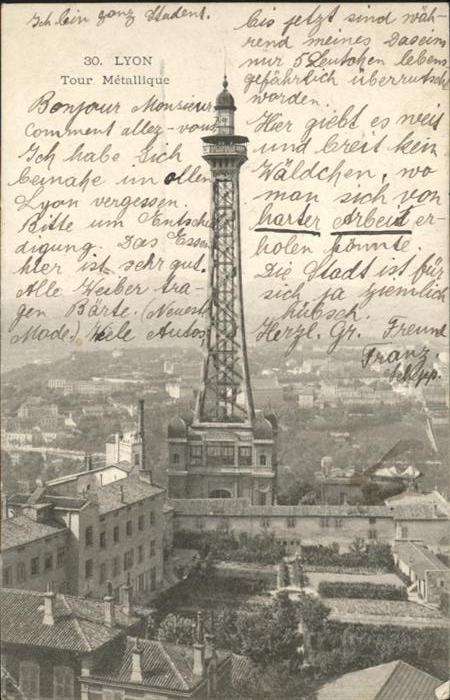 Ich bin ganz Student.
30. LYON
Tour Métallique
Bonjour Monsieur
Comment allez-vous
Ich habe Sich
beinahe im ollen
Lyon vergessen.
Bitte um Entschul
digung. Das Essen
hier ist sehr gut.
Alle Weiber tra-
gen Bärte. (Neueste
Mode.) Viele Autos
bis jetzt sind wäh-
rend meines Daseins
nur 5 Leutchen lebens
gefährlich überrutscht
worden.
Hier giebt es weit
und breit kein
Wäldchen, wo
man sich von
harter Arbeit er-
holen könnte.
Die Stadt ist für
sich ja ziemlich
hübsch.
Herzl. Gr. Freund
Franz